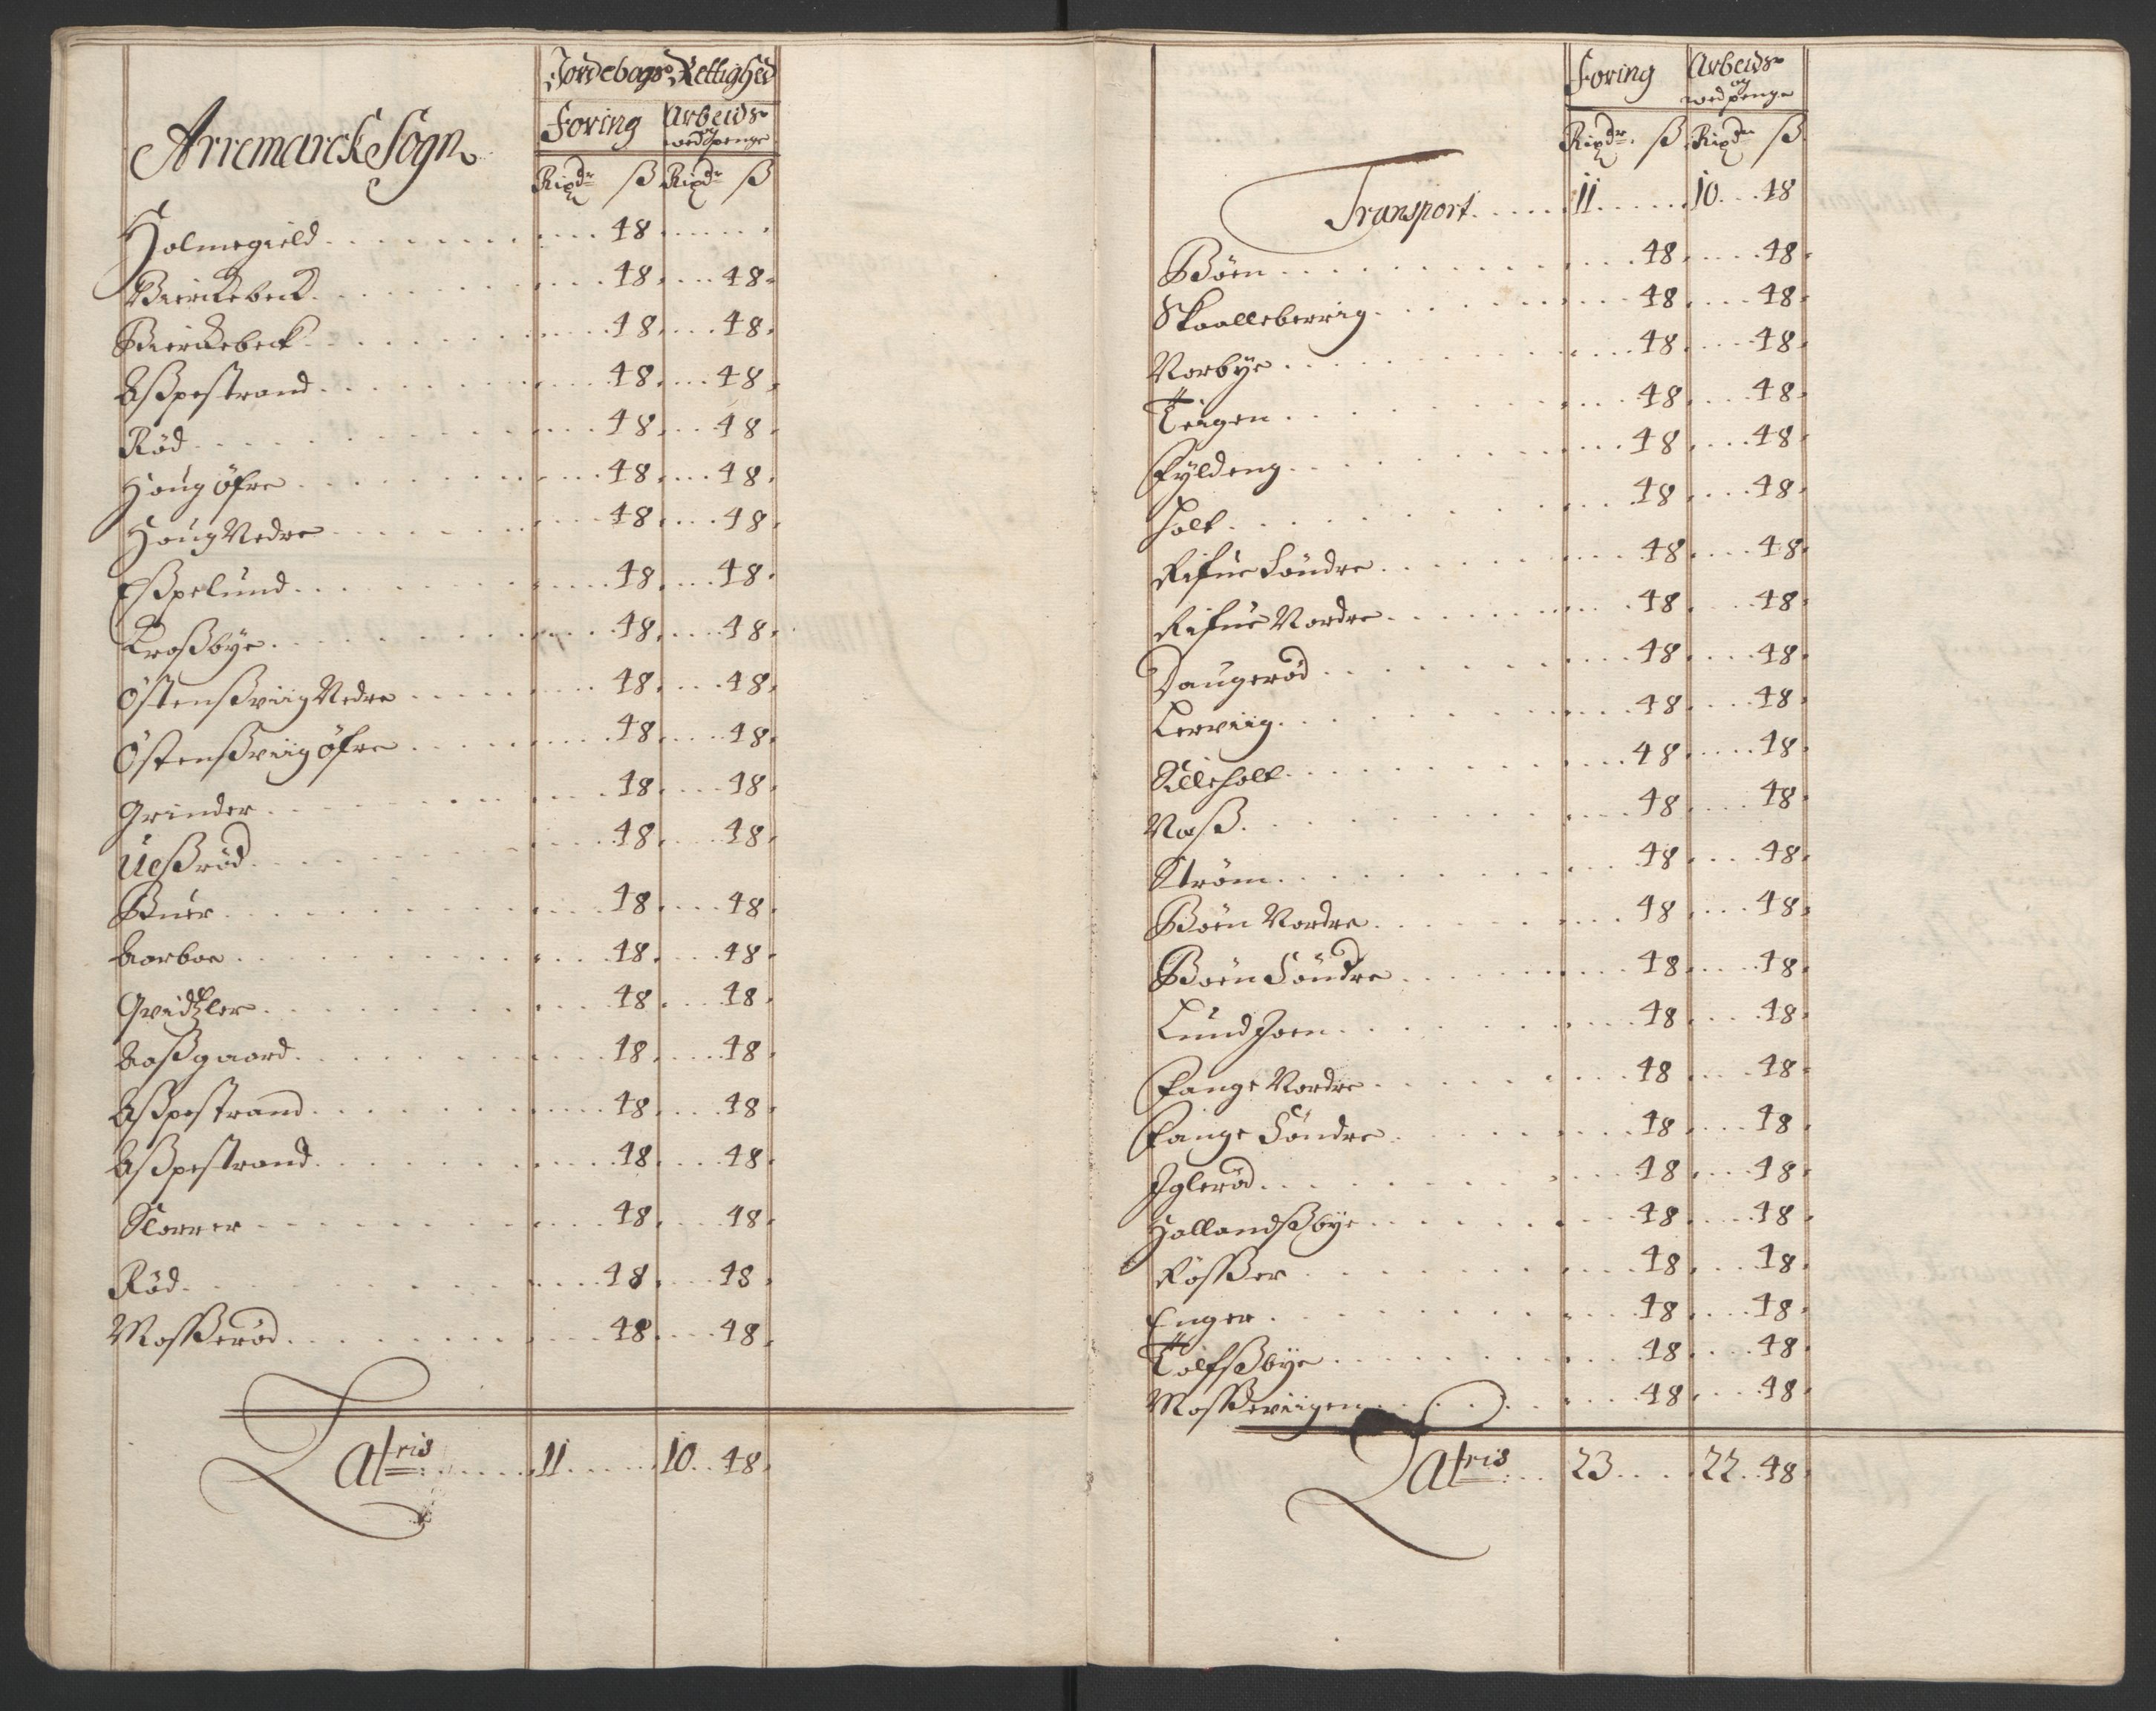 Jordebogs Rettighed
Arremarck Sogn
Foring Arbeids og wedpenge
Rixdr ß Rixdr ß
Holmegield . . . 48 . . .
Bierckebeck . . . 48 . . . 48
Bierckebeck . . . 48 . . . 48
Aßpestrand . . . 48 . . . 48
Rød . . . 48 . . . 48
Houg øfre . . . 48 . . . 48
Houg Nedre . . . 48 . . . 48
Eßpelund . . . 48 . . . 48
Kroßbye . . . 48 . . . 48
Østenßviig Nedre . . . 48 . . . 48
Østenßviig øfre . . . 48 . . . 48
Grinder . . . 48 . . . 48
Ueßrød . . . 48 . . . 48
Buer . . . 48 . . . 48
Aarboe . . . 48 . . . 48
Qvidtzler . . . 48 . . . 48
Aaßgaard . . . 48 . . . 48
Aßpestrand . . . 48 . . . 48
Aßpestrand . . . 48 . . . 48
Slorrer . . . 48 . . . 48
Rød . . . 48 . . . 48
Mosßerød . . . 48 . . . 48
Latris . . . 11 . . . 10 . . 48
Foring Arbeids og wedpenge
Rixdr ß Rixdr ß
Transport . . . 11 . . . 10 . . . 48
Bøen . . . 48 . . . 48
Skaalleberrig . . . 48 . . . 48
Norbye . . . 48 . . . 48
Teigen . . . 48 . . . 48
Fyldeng . . . 48 . . . 48
Holt . . . 48 . . . 48
Rifue Søndre . . . 48 . . . 48
Rifue Nordre . . . 48 . . . 48
Daugerød . . . 48 . . . 48
Lerviig . . . 48 . . . 48
Silleholt . . . 48 . . . 48
Næß . . . 48 . . . 48
Strøm . . . 48 . . . 48
Bøen Nordre . . . 48 . . . 48
Bøen Søndre . . . 48 . . . 48
Lund . . . 48 . . . 48
Fange Nordre . . . 48 . . . 48
Fange Søndre . . . 48 . . . 48
Iglerød . . . 48 . . . 48
Hallandßbye . . . 48 . . . 48
Røsßer . . . 48 . . . 48
Enger . . . 48 . . . 48
Tolfßbye . . . 48 . . . 48
Mosßeviigen . . . 48 . . . 48
Latris . . . 23 . . . 22 . . 48